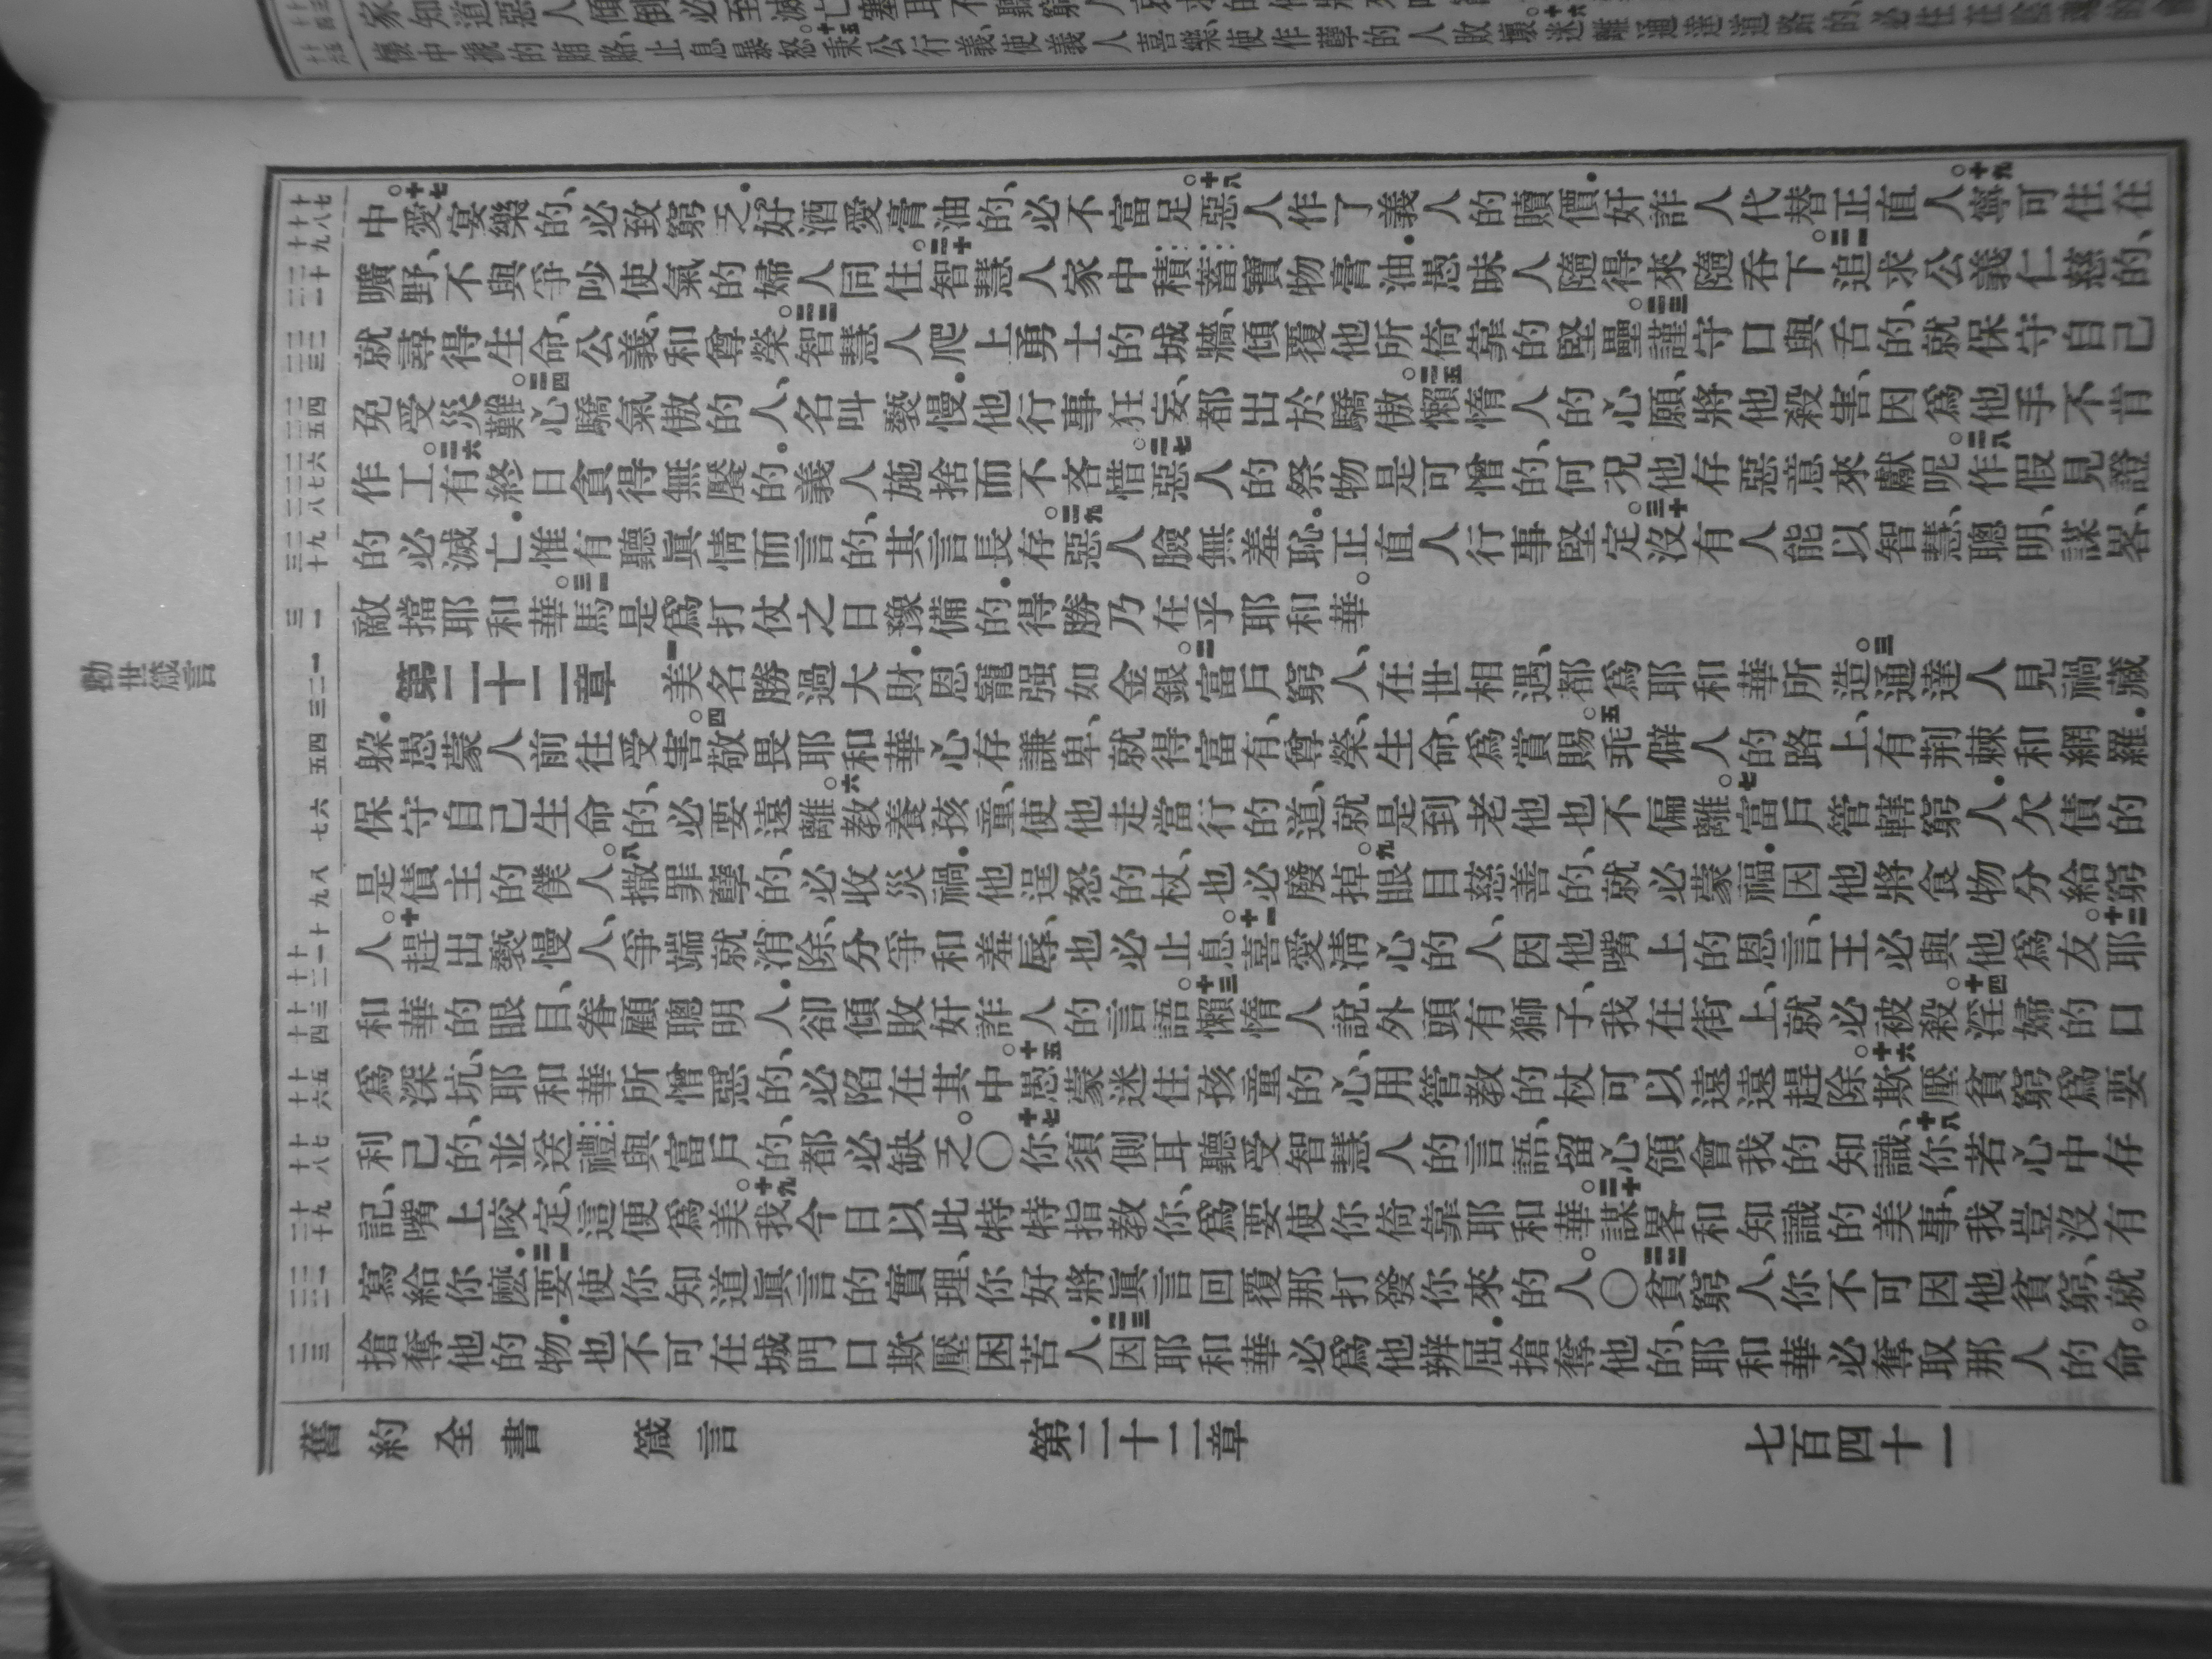 懷中攙的賄賂、止息暴怒。十五秉公行義、使義人喜樂、使作孽的人敗壞。十六迷離通達道路的、必住在陰魂的
勸世箴言
十七 十八 十九 二十 二一 二二 二三 二四 二五 二六 二七 二八 二九 三十 三一 一 二 三 四 五 六 七 八 九 十 十一 十二 十三 十四 十五 十六 十七 十八 十九 二十 二一 二二 二三
中。十七愛宴樂的、必致窮乏．好酒愛膏油的、必不富足。十八惡人作了義人的贖價．奸詐人代替正直人。十九寧可住在
曠野、不與爭吵使氣的婦人同住。二十智慧人家中積蓄寶物膏油．愚昧人隨得來隨吞下。二一追求公義仁慈的、
就尋得生命、公義、和尊榮。二二智慧人爬上勇士的城牆、傾覆他所倚靠的堅壘。二三謹守口與舌的、就保守自己
免受災難。二四心驕氣傲的人、名叫褻慢．他行事狂妄、都出於驕傲。二五懶惰人的心願、將他殺害、因爲他手不肯
作工。二六有終日貪得無饜的．義人施捨而不吝惜。二七惡人的祭物是可憎的、何况他存惡意來獻呢。二八作假見證
的必滅亡．惟有聽眞情而言的、其言長存。二九惡人臉無羞恥．正直人行事堅定。三十沒有人能以智慧、聰明、謀畧、
敵擋耶和華。三一馬是爲打仗之日豫備的．得勝乃在乎耶和華。
第二十二章 一美名勝過大財．恩寵强如金銀。二富戶窮人、在世相遇、都爲耶和華所造。三通達人見禍藏
躱．愚蒙人前往受害。四敬畏耶和華心存謙卑、就得富有、尊榮、生命、爲賞賜。五乖僻人的路上、有荆棘和網羅．
保守自己生命的、必要遠離。六教養孩童、使他走當行的道、就是到老他也不偏離。七富戶管轄窮人．欠債的
是債主的僕人。八撒罪孽的、必收災禍．他逞怒的杖、也必廢掉。九眼目慈善的、就必蒙福．因他將食物分給窮
人。十趕出褻慢人、爭端就消除、分爭和羞辱、也必止息。十一喜愛淸心的人、因他嘴上的恩言、王必與他爲友。十二耶
和華的眼目、眷顧聰明人．卻傾敗奸詐人的言語。十三懶惰人說、外頭有獅子、我在街上、就必被殺。十四淫婦的口
爲深坑、耶和華所憎惡的、必陷在其中。十五愚蒙迷住孩童的心、用管教的杖可以遠遠趕除。十六欺壓貧窮爲要
利己的、並送禮與富戶的、都必缺乏。〇十七你須側耳聽受智慧人的言語、留心領會我的知識、十八你若心中存
記、嘴上咬定、這便爲美。十九我今日以此特特指教你、爲要使你倚靠耶和華。二十謀畧和知識的美事、我豈沒有
寫給你麽．二一要使你知道眞言的實理、你好將眞言回覆那打發你來的人。〇二二貧窮人、你不可因他貧窮、就
搶奪他的物．也不可在城門口欺壓困苦人．二三因耶和華必爲他辨屈．搶奪他的、耶和華必奪取那人的命。
舊約全書 箴言 第二十二章 七百四十一